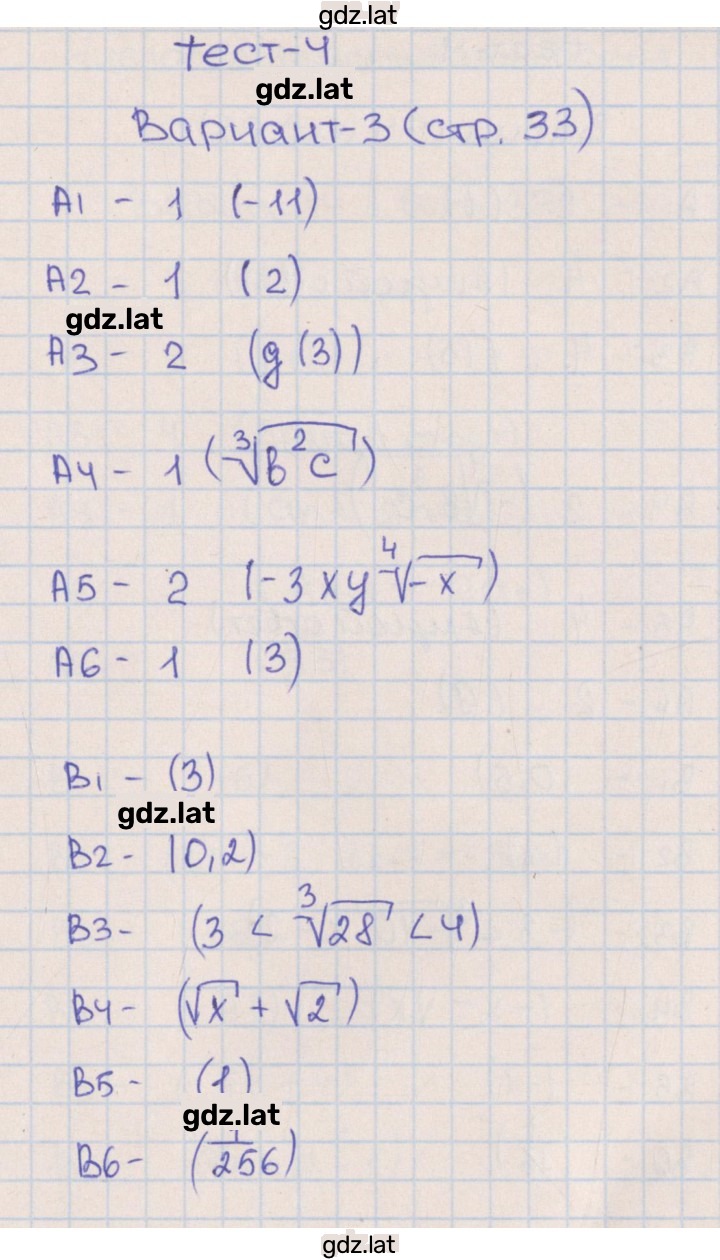 gdz.lat
тест-4
gdz.lat
Вариант-3 (стр. 33)
А1 - 1 (-11)
А2 - 1 (2)
gdz.lat
А3 - 2 (g(3))
А4 - 1 (∛(в²с))
А5 - 2 (-3xy ∜(-x))
А6 - 1 (3)
В1 - (3)
gdz.lat
В2 - (0,2)
В3 - (3 < ∛28 < 4)
В4 - (√x + √2)
В5 - (1)
gdz.lat
В6 - (1/256)
gdz.lat